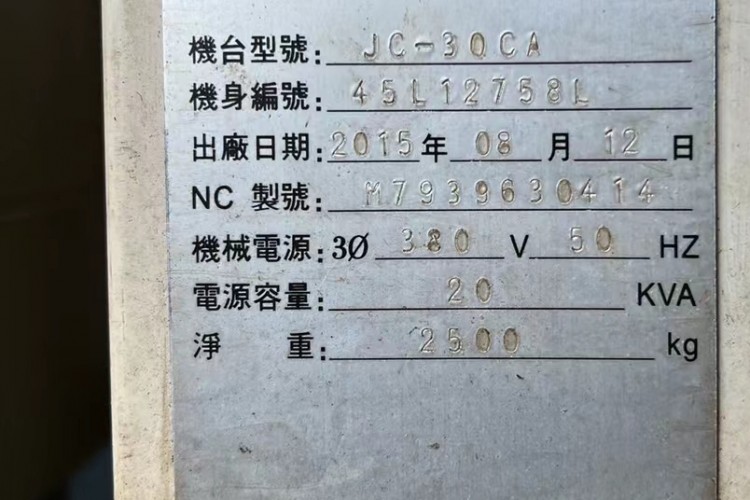 機台型號: JC-30CA
機身編號: 45L12758L
出廠日期: 2015 年 08 月 12 日
NC 製號: M7939630414
機械電源: 3Ø 380 V 50 HZ
電源容量: 20 KVA
淨 重: 2500 kg